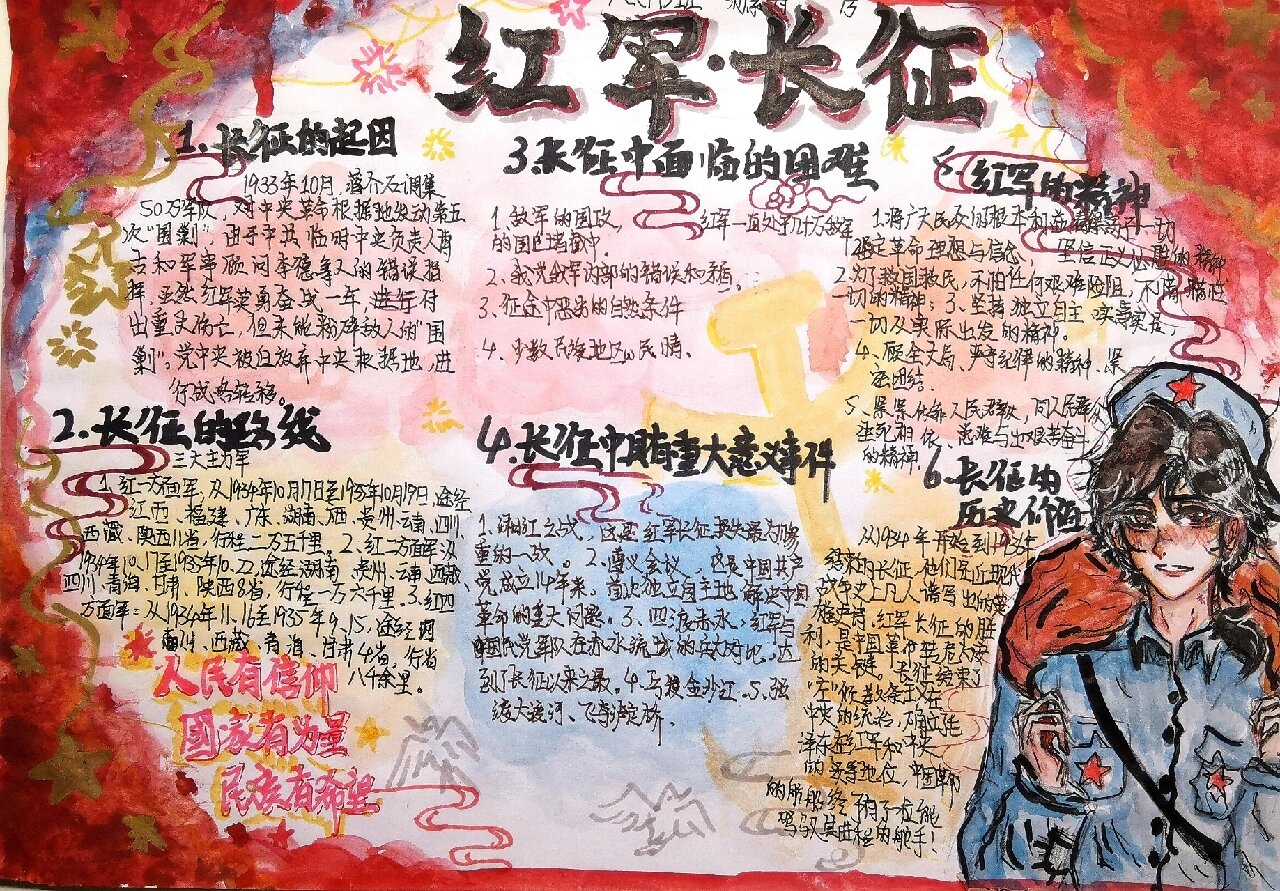 红军·长征
1.长征的起因
1933年10月,蒋介石调集
50万军队,对中央革命根据地发动第五
次“围剿”,由于中共临时中央负责人博
古和军事顾问李德等人的错误指
挥,虽然红军英勇奋战一年,进行付
出重大伤亡,但未能粉碎敌人的“围
剿”,党中央被迫放弃中央根据地,进
行战略转移。
2.长征的路线
三大主力军
1、红一方面军,从1934年10月17日至1935年10月19日,途经
江西、福建、广东、湖南、广西、贵州、云南、四川、
西藏、陕西11省,行程二万五千里。2、红二方面军:从
途经湖南、贵州、云南、西藏、
四川、青海、甘肃、陕西8省,行程一万六千里。3、红四
方面军:从1934年11、16至1935年9、15,途经
四川、西藏、青海、甘肃4省,行省
八千余里。
人民有信仰
國家有力量
民族有希望
3.长征中面临的困难
1、敌军的围攻, 红军一直处于几十万敌军
的围追堵截中。
2、我党敌军内部的错误和矛盾。
3、征途中恶劣的自然条件
4、少数民族地区的民情。
4.长征中具有重大意义事件
1、湘江之战,这是红军长征损失最为惨
重的一战。2、遵义会议,这是中国共产
党成立14年来,首次独立自主地解决中国
革命的重大问题。3、四渡赤水,红军与
国民党军队在赤水流域的兵力对比,达
到了长征以来之最。4、巧渡金沙江。5、强
渡大渡河、飞夺泸定桥。
5.红军的精神
1、将广大民众的根本利益看得高于一切
坚定革命理想与信念, 坚信正义必胜的精神
2、为了救国救民,不怕任何艰难险阻,不惜牺牲
一切的精神;3、坚持独立自主、实事求是,
一切从实际出发的精神。
4、顾全大局、严守纪律的精神、紧
密团结.
5、紧紧依靠人民群众,同人民群众
生死相依、患难与出艰苦奋斗
的精神.
6.长征的
历史价值
从1934年开始到1935年
结束的长征,他们是近现代
战争史上凡人谱写出的英
雄史诗,红军长征的胜
利,是中国革命转危为安
的关键。长征结束了
“左”倾教条主义在
中央的统治,确立毛
泽东在红军和中央
的领导地位,中国革命
的航船终于有了
驾驭其进程的舵手!